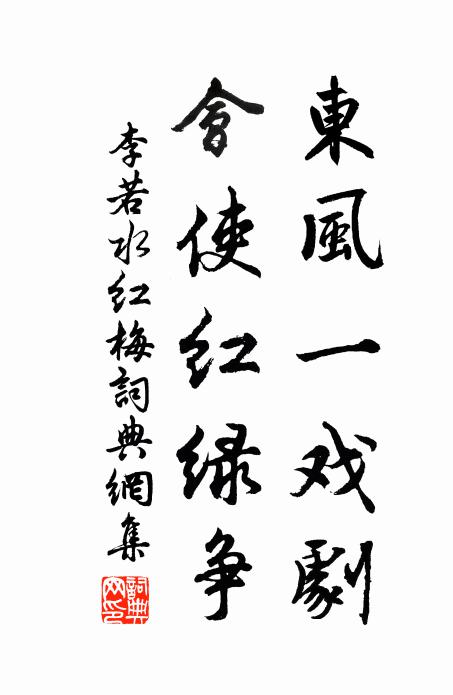 東風一戏劇
會使红緑争
李若水红梅詞典網集
詞典网印